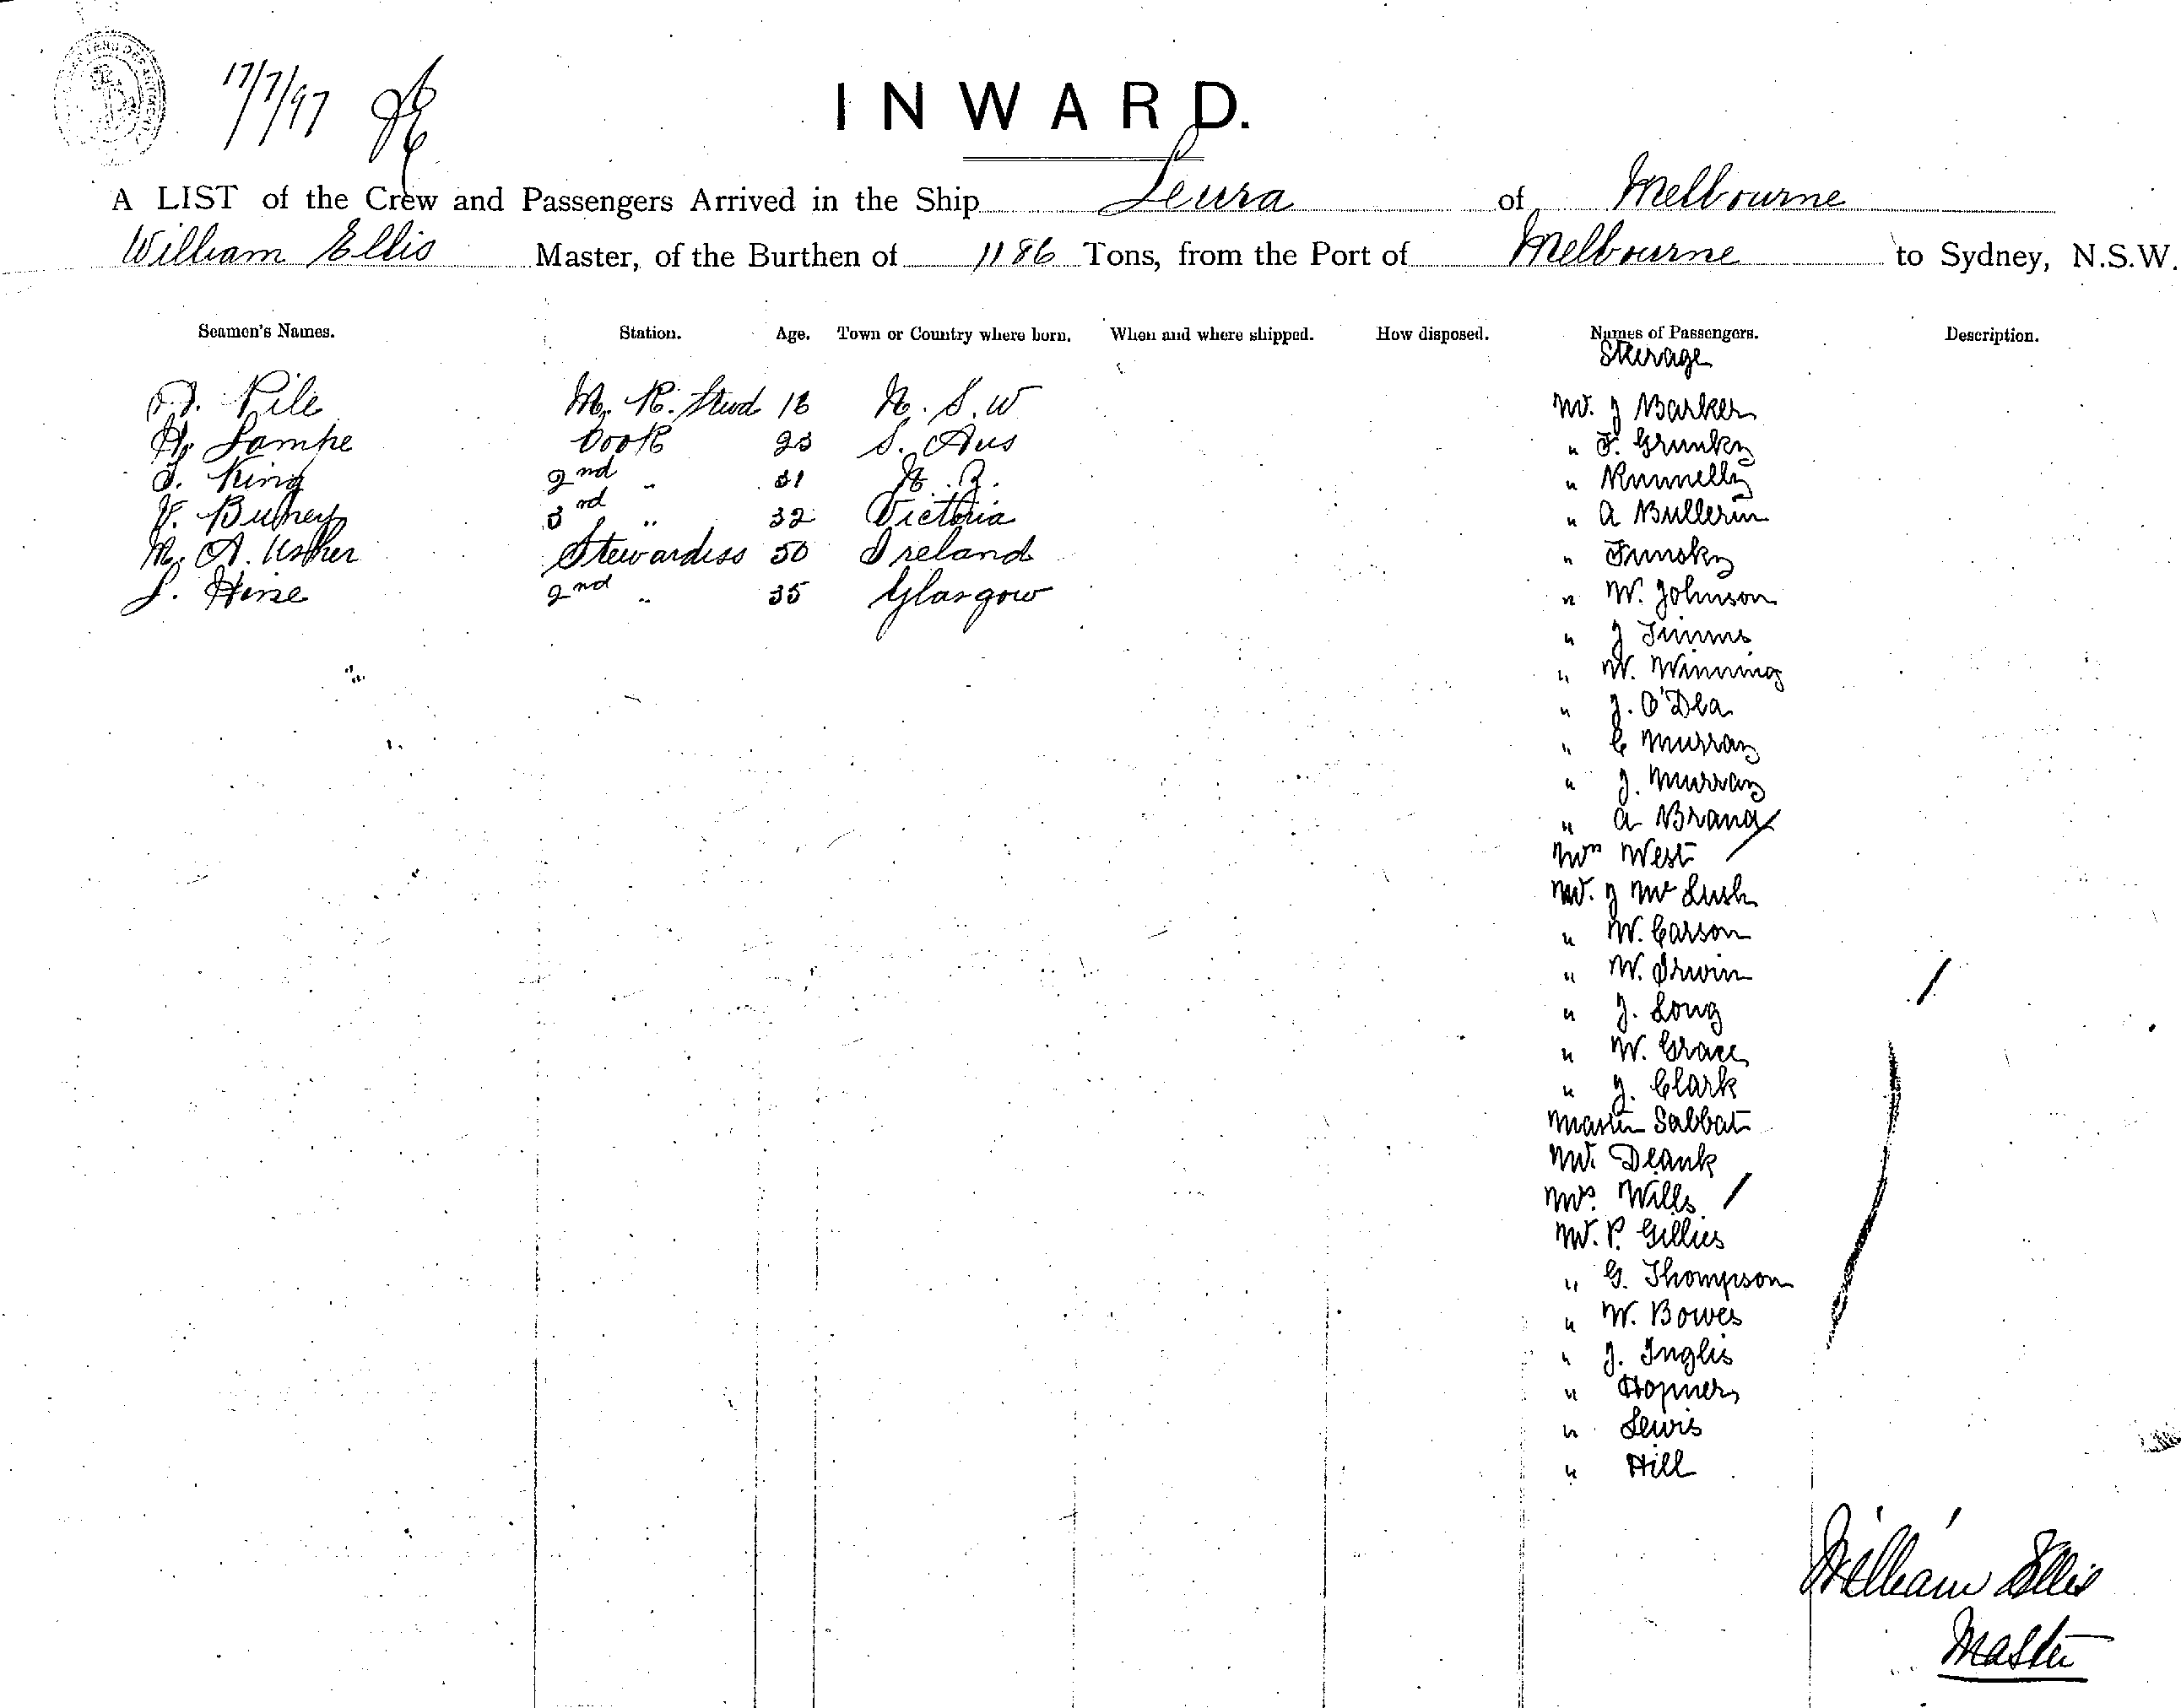 17/7/97
INWARD.
A LIST of the Crew and Passengers Arrived in the Ship Leura of Melbourne
William Ellis Master, of the Burthen of 1186 Tons, from the Port of Melbourne to Sydney, N.S.W.
Seamen's Names. Station. Age. Town or Country where born. When and where shipped. How disposed. Names of Passengers. Description.
Steerage
Pile M. R. Stwd 18 N. S. W
H. Lampe Cook 23 S. Aus
King 2nd " 31 N. Z.
3rd " 32 Victoria
M. A. Usher Stewardess 50 Ireland
L. Hine 2nd " 35 Glasgow
Mr. J Barker
" F. Grunky
" Nunnelly
" A Bullerin
"
" W. Johnson
" J Timms
" W. Winning
" J. O'Dea
" C Murray
" J. Murray
" A Brand
Mrs West
Mr. J Mc Lush
" W. Carson
" W. Irwin
" J. Long
" W. Grace
" J. Clark
Master Sabbat
Mr. Deank
Mrs. Wills
Mr. P. Gillies
" G. Thompson
" W. Bowes
" J. Inglis
"
" Lewis
" Hill
William Ellis
Master